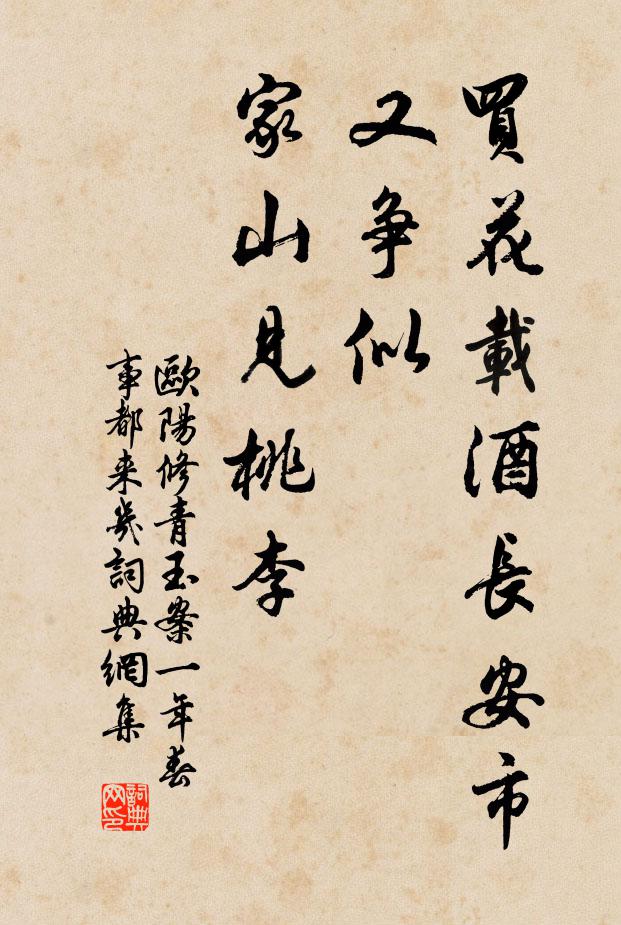 買花載酒長安市
又爭似
家山見桃李
歐陽修青玉案一年春
事都来幾詞典網集
詞典
网印